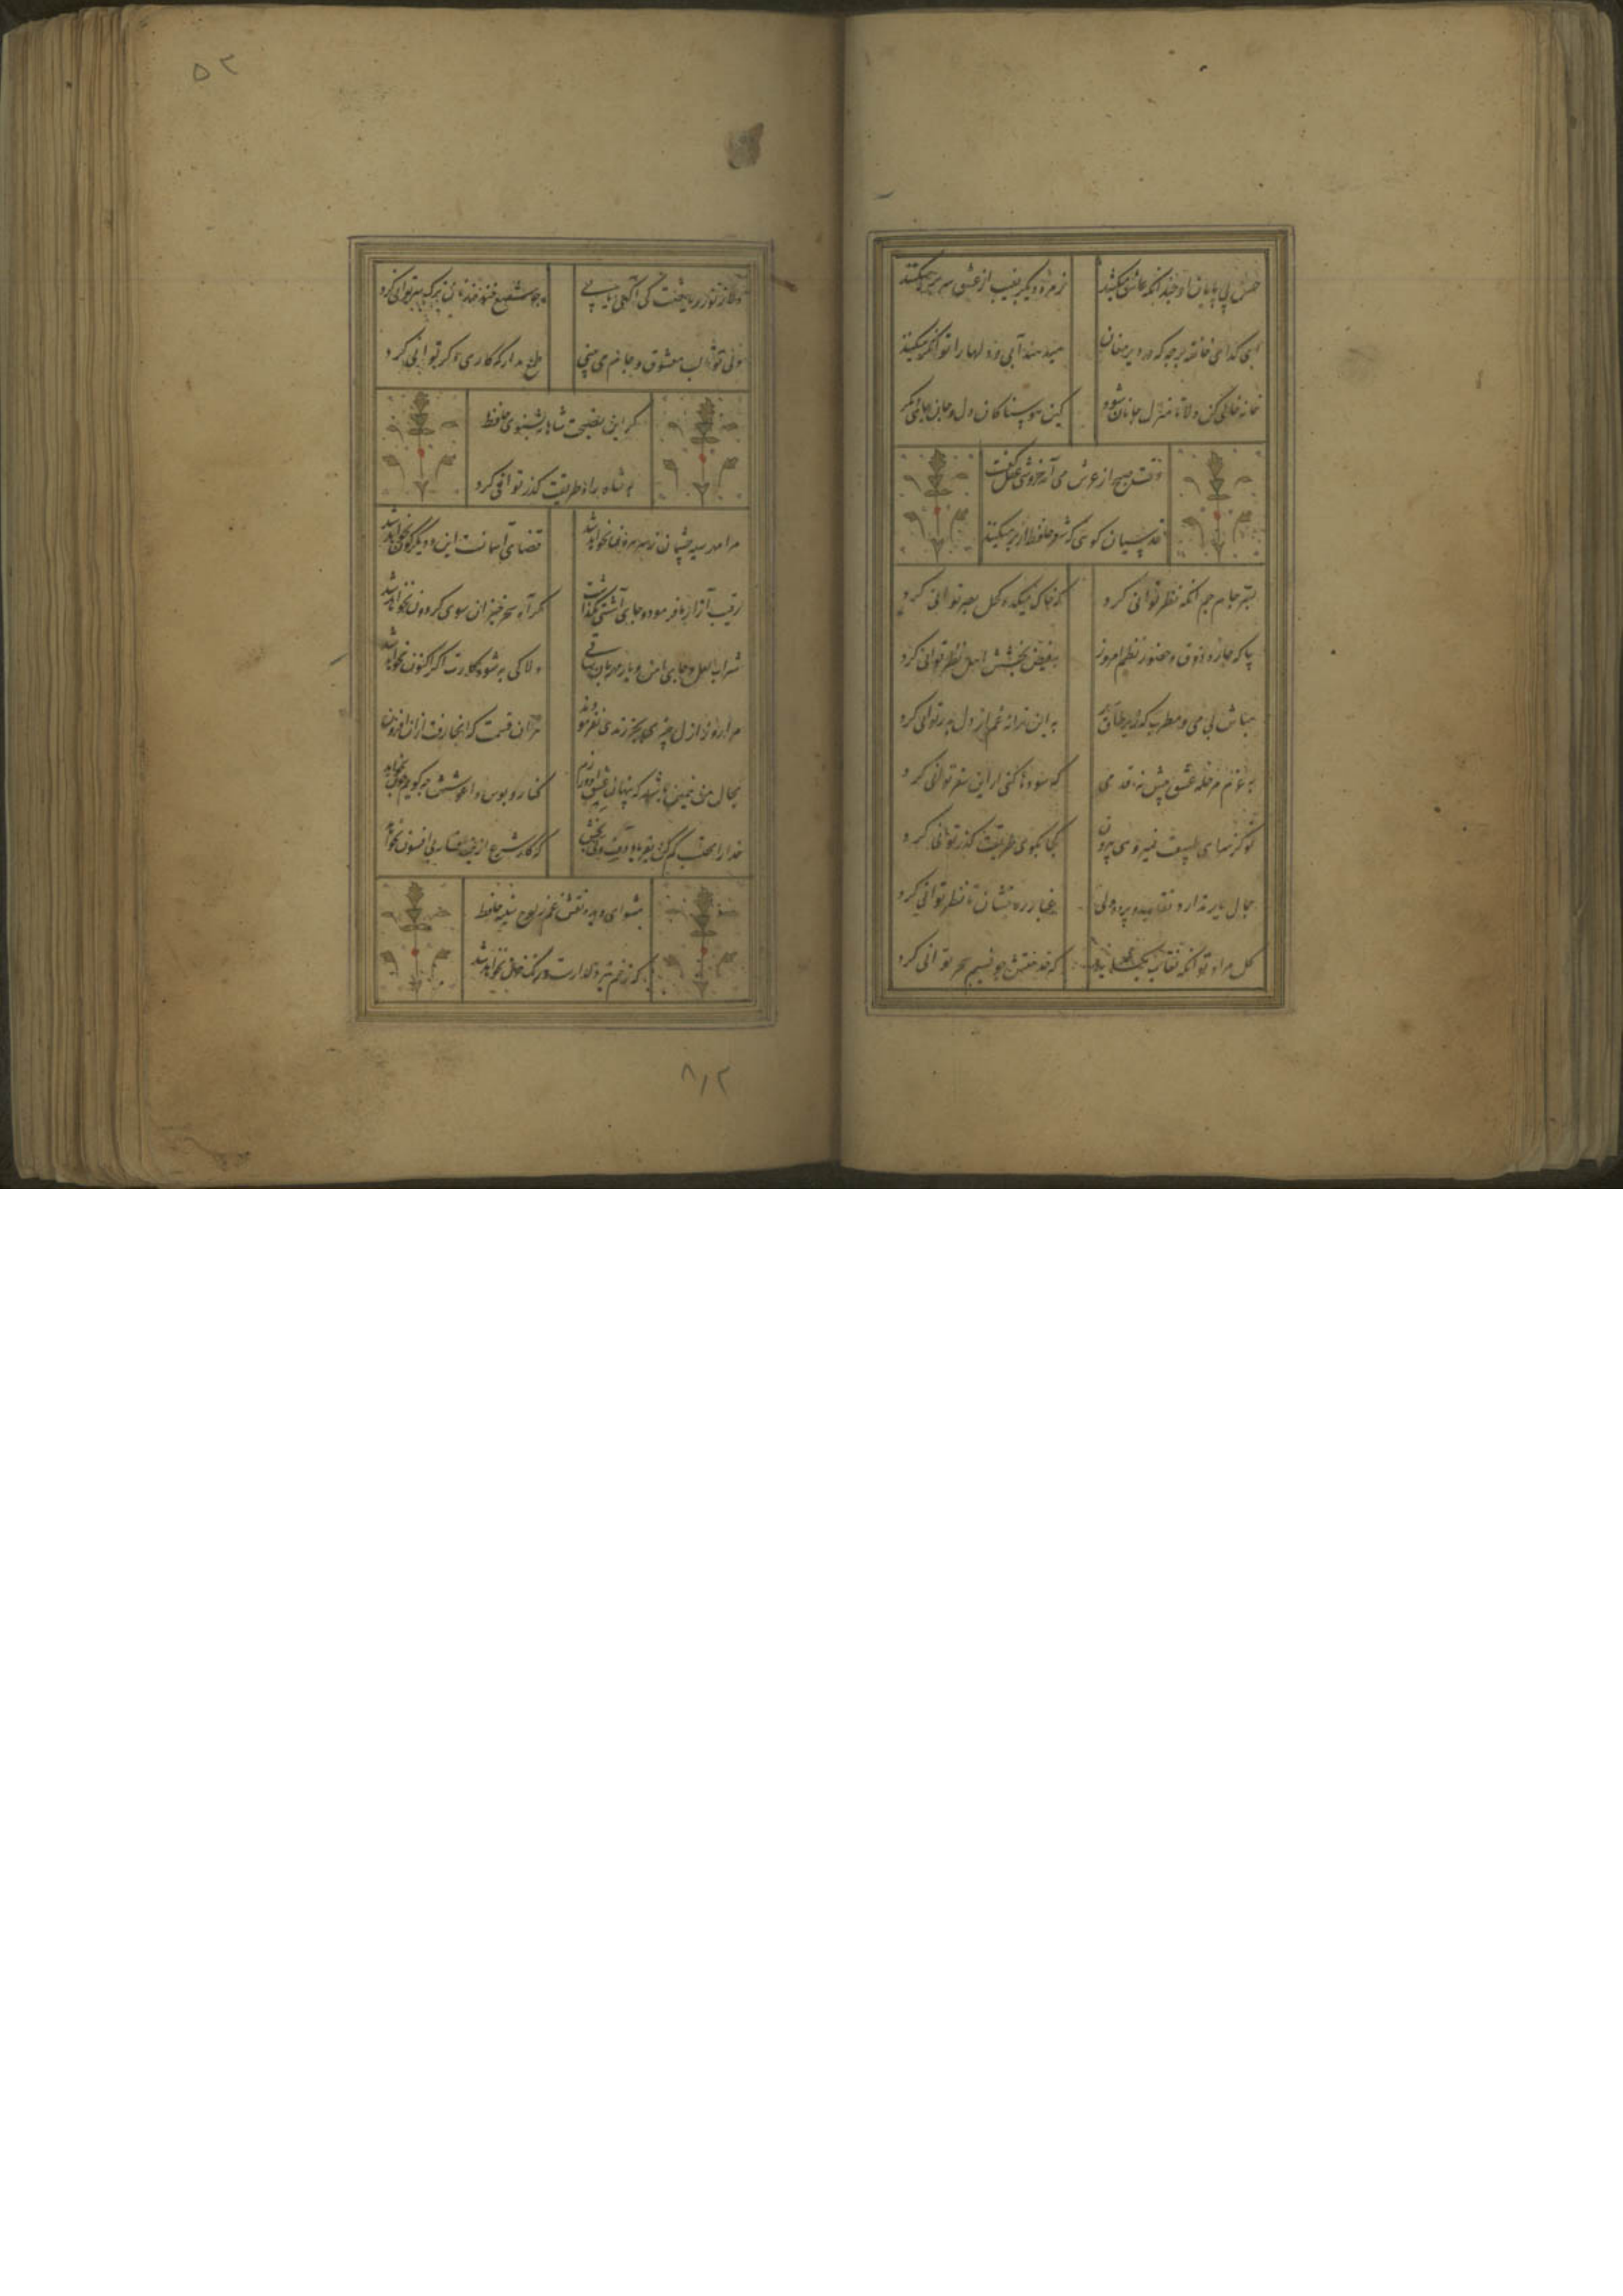 حسن بی پایان او چندانکه عاشق میکشد
زمره دیگر بغیب از عشق سر بر میکنند
ای کدای خانقه برجه که در دیر مغان
میدهند آبی و دلها را توانگر میکنند
خانه خالی کن دلا تا منزل جانان شود
کین هوسناکان دل و جان جای دیگر
وقت صبح از عرش می آمد خروشی عقل گفت
قدسیان گوئی که شعر حافظ از بر میکنند
بسر جام جم انکه نظر توانی کرد
که خاک میکده کحل بصر توانی کرد
بیا که چاره ذوق و حضور نظم امروز
بفیض بخشش اهل نظر توانی کرد
مباش بی می و مطرب که زیر طاق
به این ترانه غم از دل بدر توانی کرد
به عزم مرحله عشق پیش نه قدمی
که سودها کنی ار این سفر توانی کرد
تو کز سرای طبیعت نمیروی بیرون
کجا بکوی طریقت گذر توانی کرد
جمال یار ندارد نقاب و پرده ولی
غبار ره بنشان تا نظر توانی کرد
گل مراد تو انکه نقاب بگشاید
که خدمتش چو نسیم سحر توانی کرد
۵۲
دلا ز نور ریاضت گر آگهی یابی
چو شمع خنده زنان ترک سر توانی کرد
ولی تو تا لب معشوق و جام می بینی
طمع مدار که کاری دگر توانی کرد
گر این نصیحت شاهانه بشنوی حافظ
به شاه راه طریقت گذر توانی کرد
مرا مهر سیه چشمان ز سر بیرون نخواهد شد
قضای آسمانست این و دیگرگون نخواهد شد
رقیب آزارها فرمود و جای آشتی نگذاشت
مگر آه سحر خیزان سوی گردون نخواهد شد
شراب لعل و جای امن و یار مهربان ساقی
دلا کی به شود کارت اگر اکنون نخواهد شد
مرا روز ازل چیزی بجز رندی نفرمودند
هر آن قسمت که آنجا رفت از آن افزون
مجال من همین باشد که پنهان عشق او ورزم
کنار و بوس و آغوشش چه گویم چون نخواهد
خدا را محتسب
که کار شرع ازین افسانه بی قانون نخواهد
مشوی ای دیده نقش غم ز لوح سینه حافظ
که زخم تیر دلدارست و رنگ خون نخواهد شد
۸۱۲